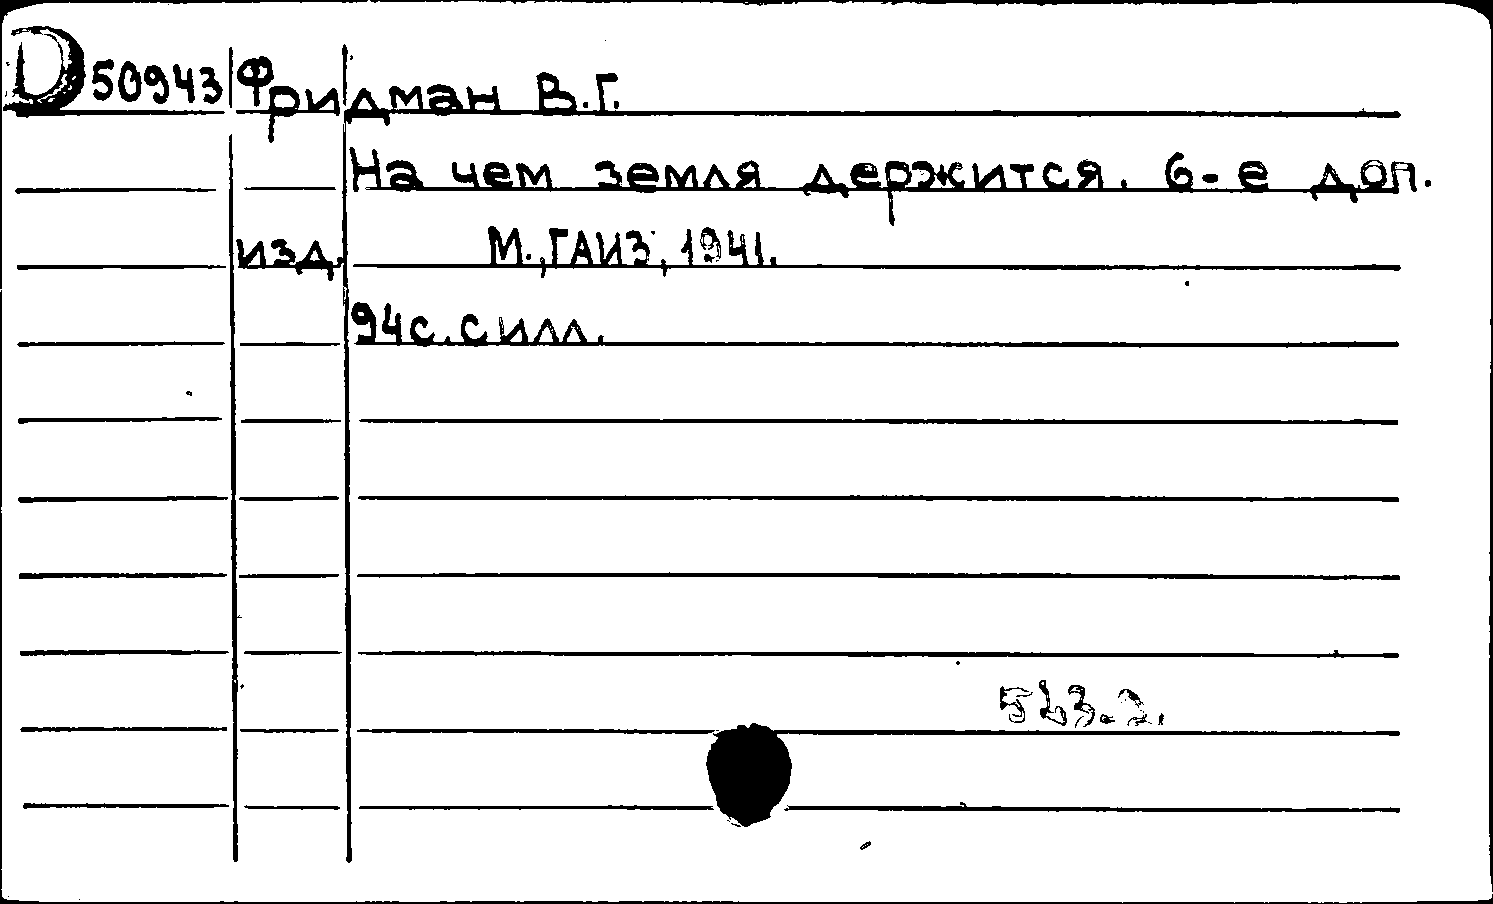 D 50943 Фридман В.Г.
На чем земля держится. 6-е доп.
изд. М., ГАИЗ, 1941.
94с. с илл.
523.2.